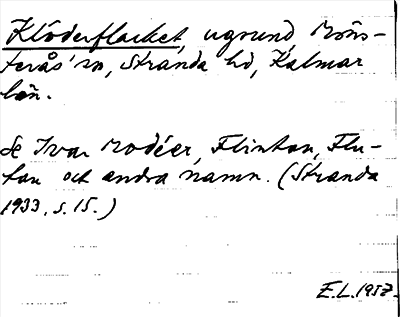 Klöderflacket, ugrund Möns-
terås sn, Stranda hd, Kalmar
län.
Se Ivar Modéer, Flintan, Flu-
tan och andra namn. (Stranda
1933, s. 15.)
E.L. 1957.